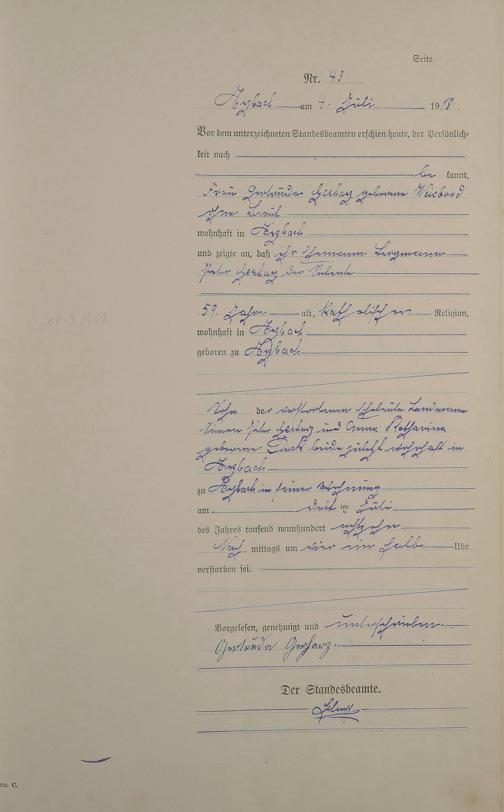 Seite
Nr. 43
Arzbach am 4. Juli 1918.
Vor dem unterzeichneten Standesbeamten erschien heute, der Persönlich-
keit nach
be kannt,
Frau Gertruda Gerharz geborene Weisbrod
ohne Beruf
wohnhaft in Arzbach
und zeigte an, daß ihr Ehemann Bergmann
Peter Gerharz der Vierte
59 Jahre alt, katholischer Religion,
wohnhaft in Arzbach
geboren zu Arzbach
Sohn der verstorbenen Eheleute Landmann
Peter Gerharz und Anna Katharina
geborene beide zuletzt wohnhaft in
Arzbach
zu Arzbach in seiner Wohnung
am drei ten Juli
des Jahres tausend neunhundert achtzehn
Nach mittags um vier ein halb Uhr
verstorben sei.
Vorgelesen, genehmigt und unterschrieben
Gertruda Gerharz.
Der Standesbeamte.